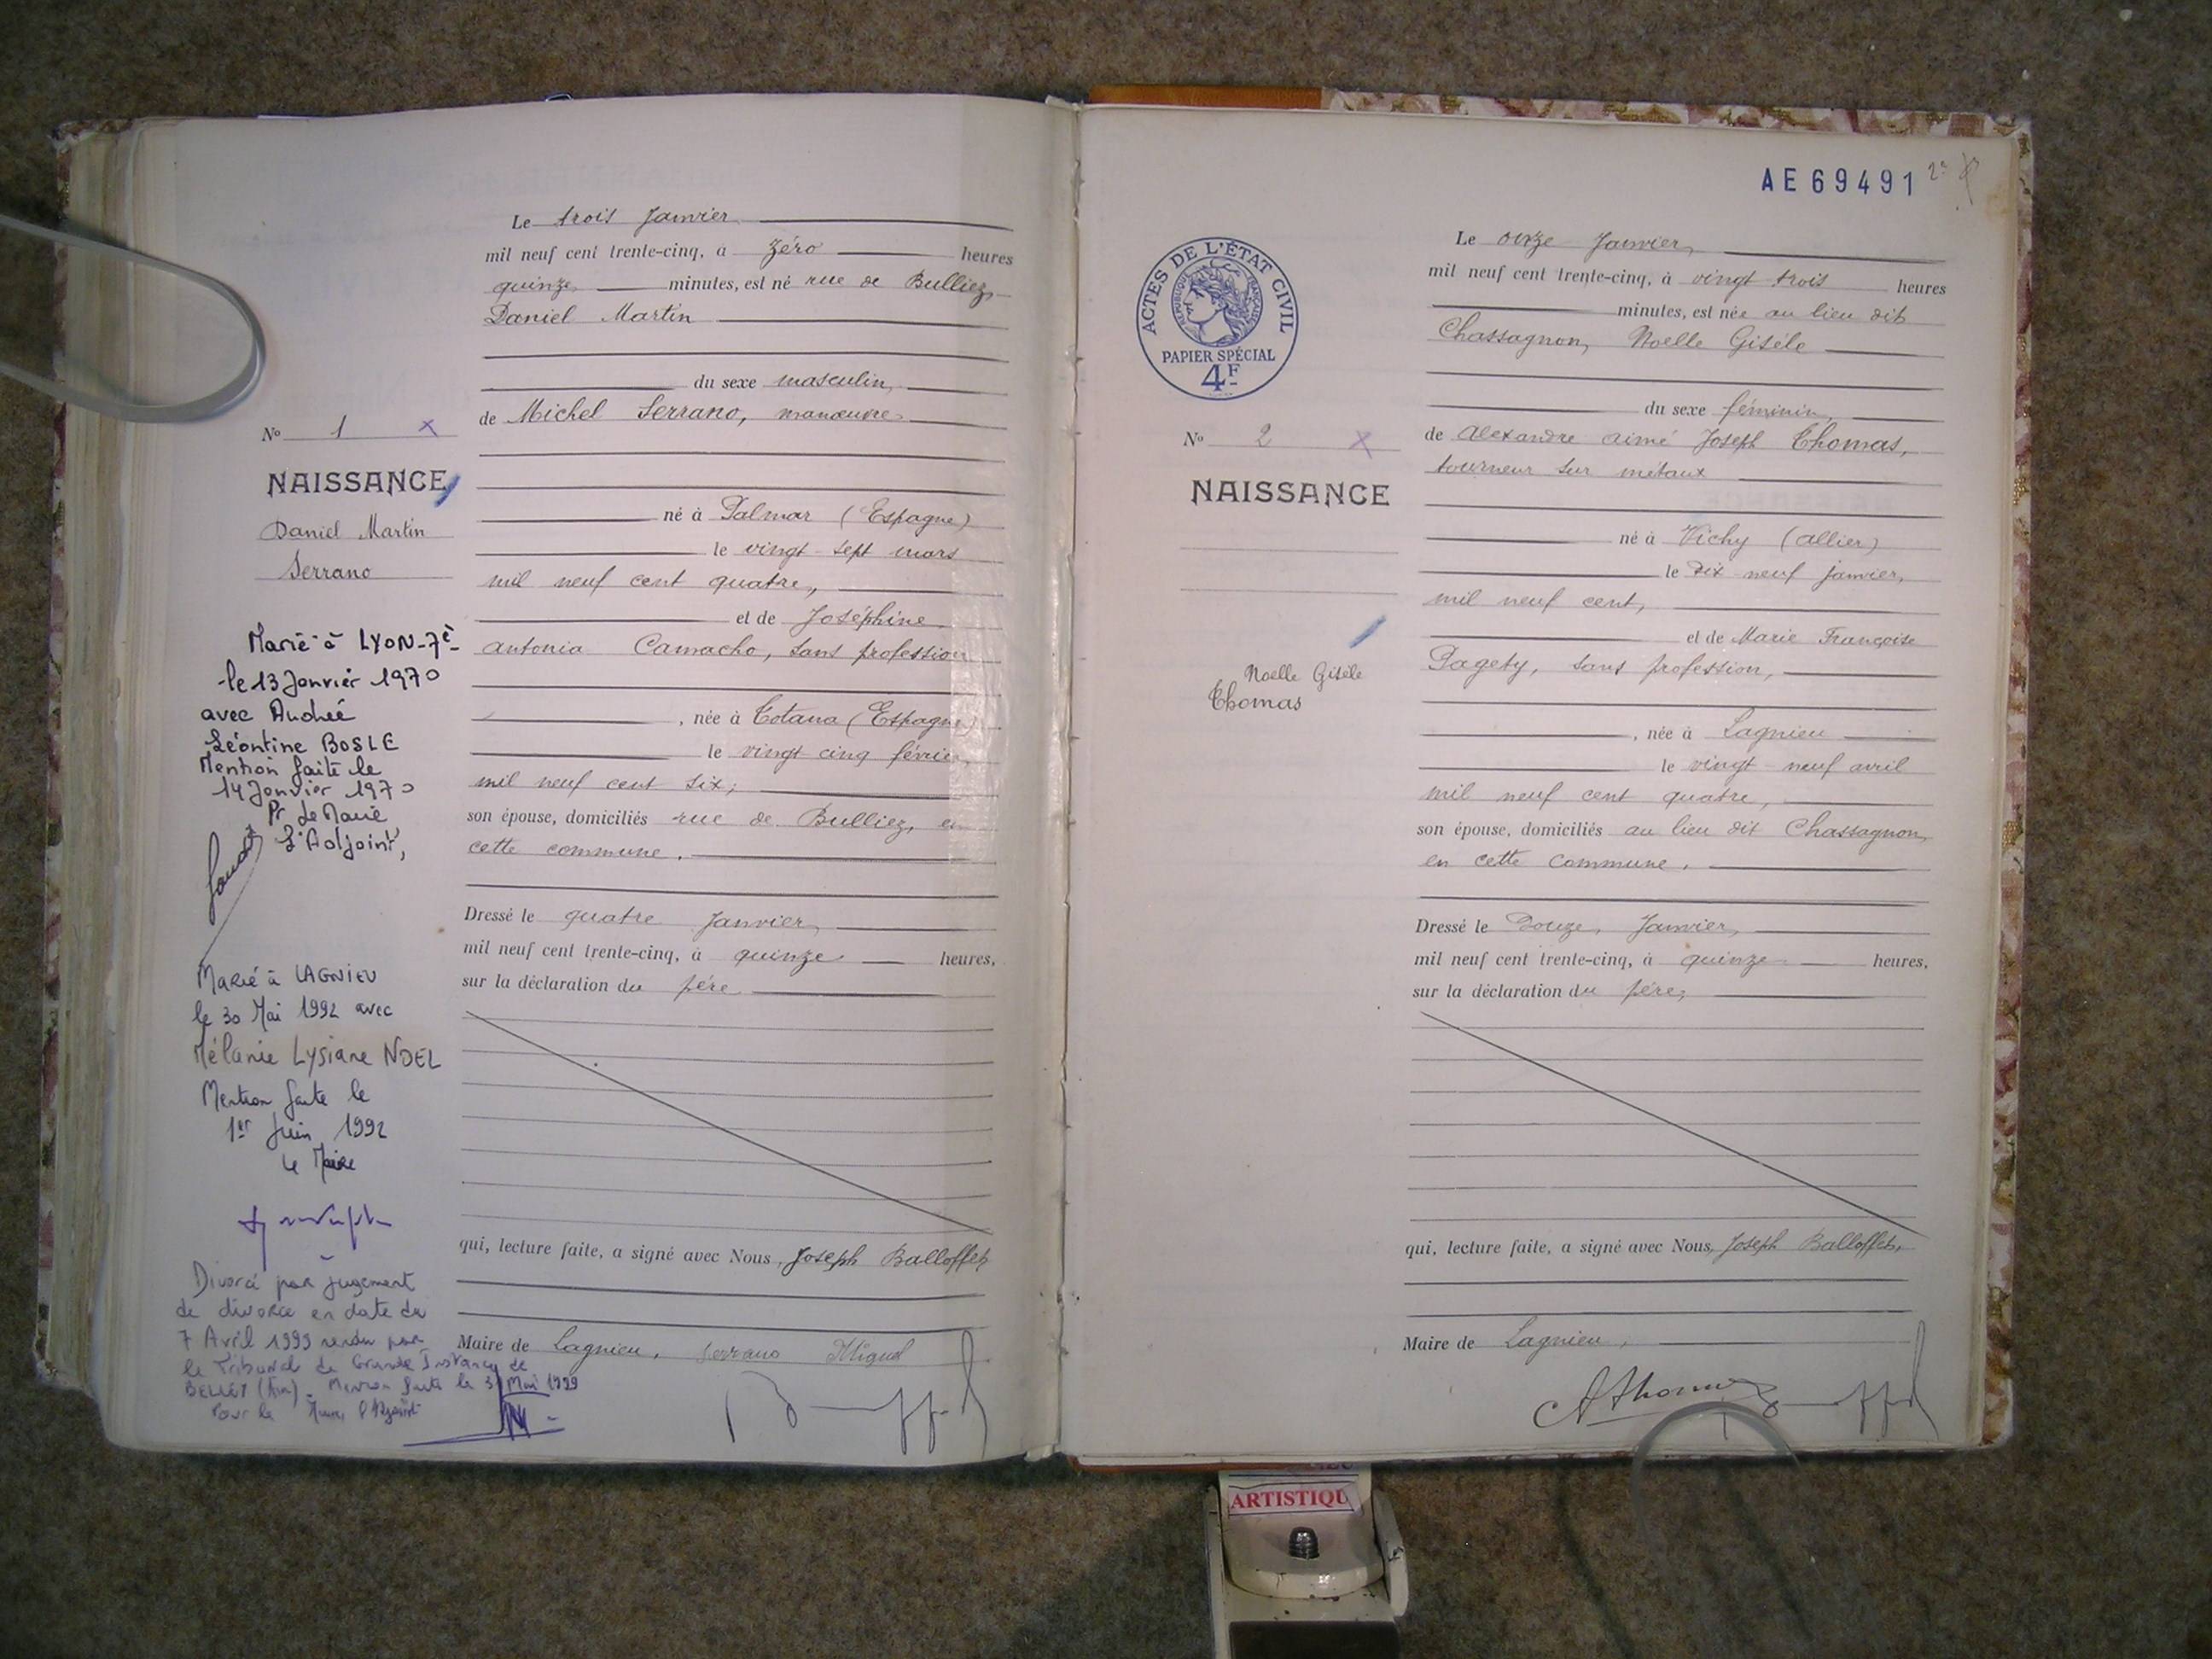 Le trois Janvier
mil neuf cent trente-cinq, à zéro heures
quinze minutes, est né rue de Bulliez,
Daniel Martin
du sexe masculin,
de Michel Serrano, manœuvre
né à Palmar (Espagne)
le vingt-sept mars
mil neuf cent quatre,
et de Joséphine
Antonia Camacho, sans profession
, née à Totana (Espagne)
le vingt cinq février,
mil neuf cent six;
son épouse, domiciliés rue de Bulliez, en
cette commune.
Dressé le quatre Janvier,
mil neuf cent trente-cinq, à quinze heures,
sur la déclaration du père
qui, lecture faite, a signé avec Nous, Joseph Balloffet
Maire de Lagnieu, Serrano Miguel
No 1
NAISSANCE
Daniel Martin
Serrano
Marié à LYON-7è
le 13 Janvier 1970
avec Andrée
Léontine BOSLE
Mention faite le
14 Janvier 1970
Pr le Maire
L'Adjoint,
Marié à LAGNIEU
le 30 Mai 1992 avec
Mélanie Lysiane NOEL
Mention faite le
1er Juin 1992
Le Maire
Divorcé par jugement
de divorce en date du
7 Avril 1999 rendu par
le Tribunal de Grande Instance de
BELLEY (Ain). Mention faite le 3 Mai 1999
Pour le Maire l'Adjoint
AE 69491
ACTES DE L'ÉTAT CIVIL
RÉPUBLIQUE FRANÇAISE
PAPIER SPÉCIAL
4F
No 2
NAISSANCE
Noelle Gisèle
Thomas
Le onze Janvier,
mil neuf cent trente-cinq, à vingt trois heures
minutes, est née au lieu dit
Chassagnon, Noelle Gisèle
du sexe féminin,
de Alexandre Aimé Joseph Thomas,
tourneur sur métaux
né à Vichy (Allier)
le dix-neuf janvier,
mil neuf cent,
et de Marie Françoise
Pagety, sans profession,
, née à Lagnieu
le vingt-neuf avril
mil neuf cent quatre,
son épouse, domiciliés au lieu dit Chassagnon,
en cette commune.
Dressé le Douze Janvier,
mil neuf cent trente-cinq, à quinze heures,
sur la déclaration du père,
qui, lecture faite, a signé avec Nous, Joseph Balloffet,
Maire de Lagnieu,
AThomas
ARTISTIQU